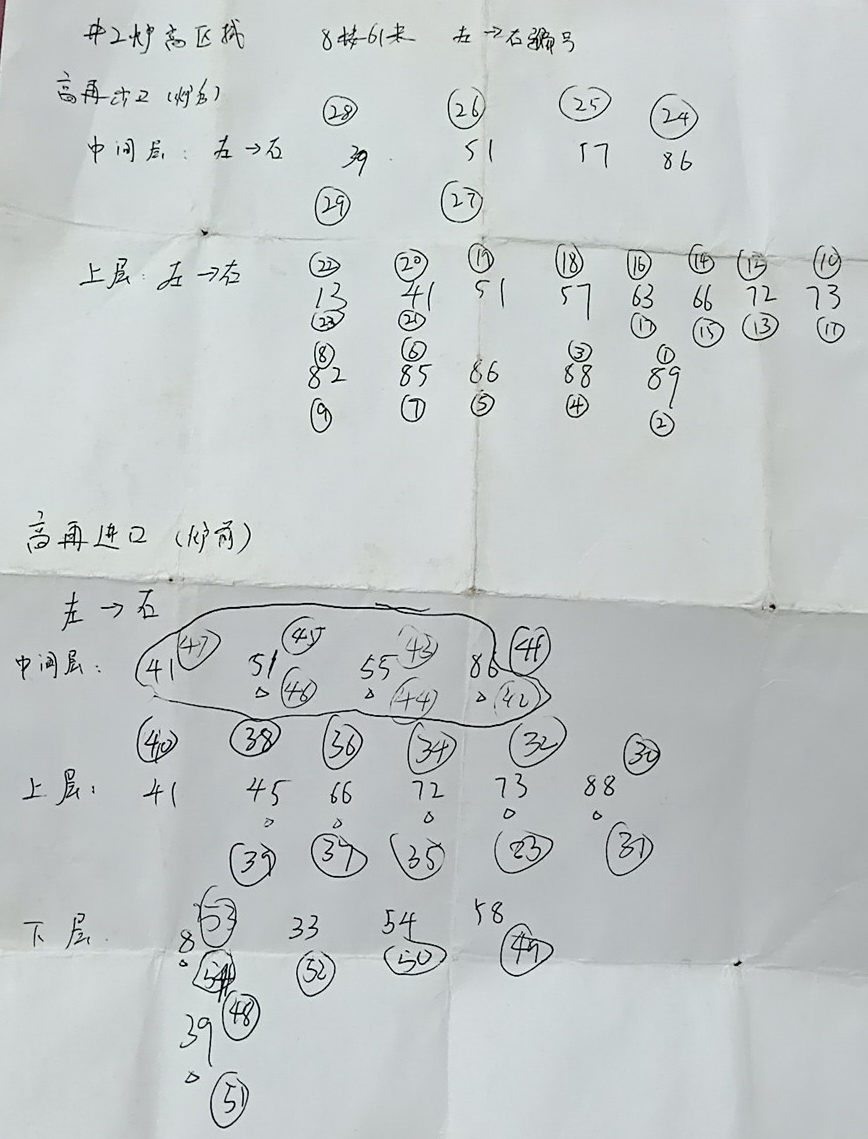 #2炉高区域 8楼61米 左→右编号
高再出口(炉台)
㉘ ㉖ ㉕ ㉔
中间层: 左→右 39 51 57 86
㉙ ㉗
上层: 左→右 ㉒ ⑳ ⑲ ⑱ ⑯ ⑭ ⑫ ⑩
13 41 51 57 63 66 72 73
㉓ ㉑ ⑰ ⑮ ⑬ ⑪
⑧ ⑥ ③ ①
82 85 86 88 89
⑨ ⑦ ⑤ ④ ②
高再进口(炉前)
左→右
㊼ ㊺ ㊸ ㊶
中间层: 41 51 55 86
㊻ ㊹ ㊷
㊵ ㊳ ㊱ ㉞ ㉜ ㉚
上层: 41 45 66 72 73 88
㊴ ㊲ ㉟ ㉓ ㉛
下层 8 (53) 33 54 58
(54) (52) ㊿ ㊾
39 ㊽
(51)